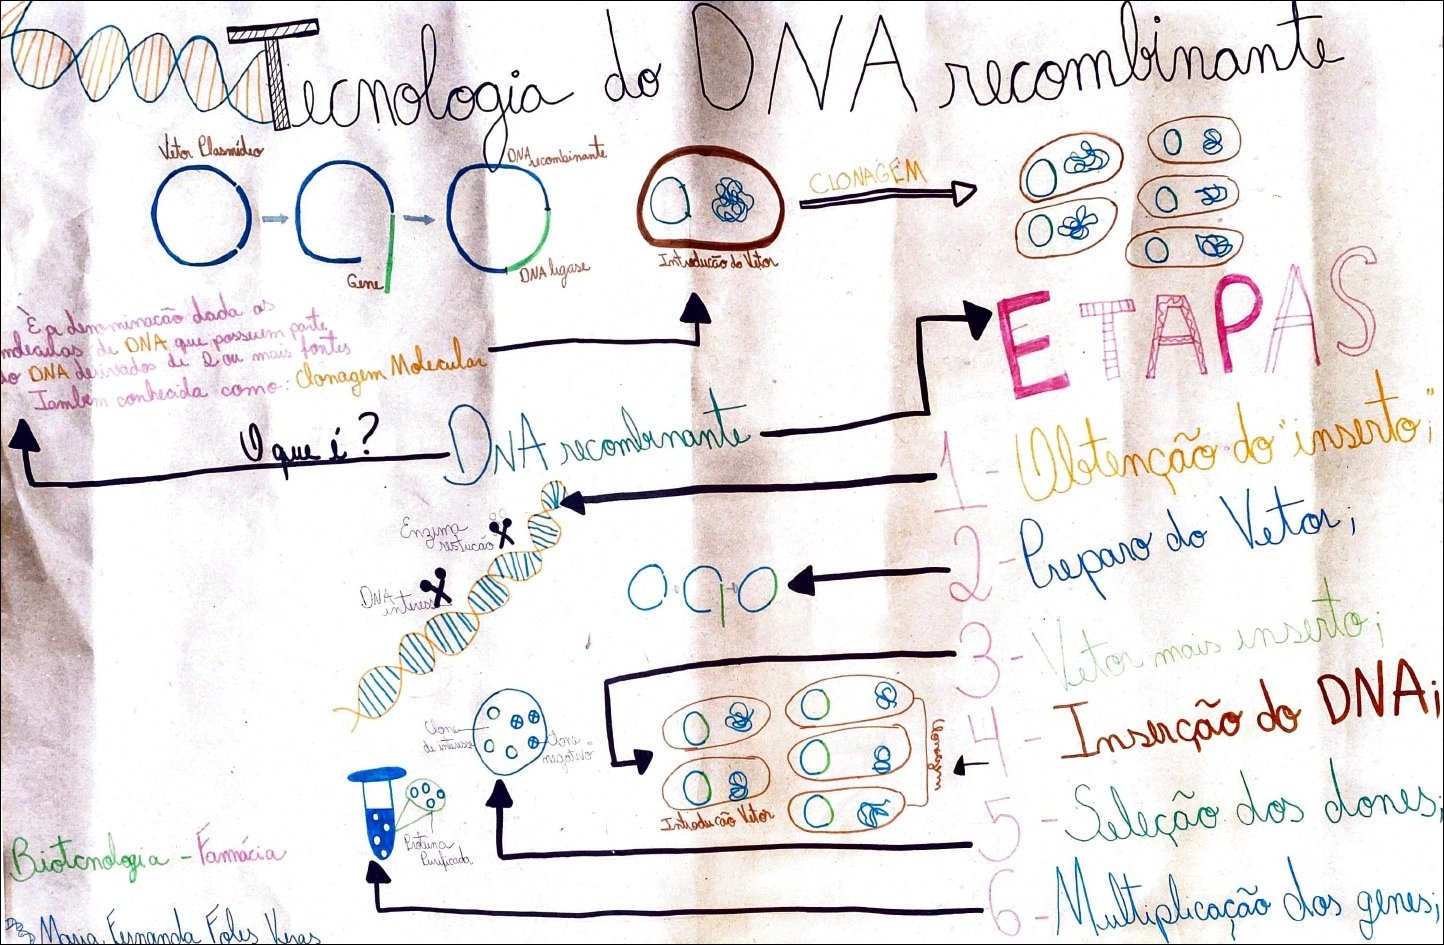 Tecnologia do DNA recombinante
Vetor Plasmídeo
Gene
DNA recombinante
DNA ligase
Introdução do Vetor
CLONAGEM
É a denominação dada as
moléculas de DNA que possuem parte
do DNA derivados de 2 ou mais fontes
Também conhecida como: Clonagem Molecular
O que é?
DNA recombinante
ETAPAS
1 - Obtenção do "inserto";
2 - Preparo do Vetor;
3 - Vetor mais inserto;
4 - Inserção do DNA;
5 - Seleção dos clones;
6 - Multiplicação dos genes;
Enzima
DNA
interess
Clone
de interesse
Clone
negativo
Introdução Vetor
Clonagem
Proteína
Purificada
Biotcnologia - Farmácia
Maria Fernanda